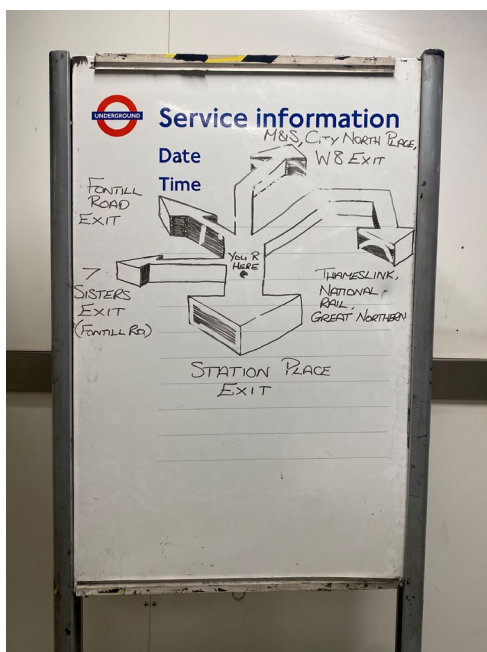 UNDERGROUND
Service information
Date
Time
M&S, CITY NORTH PLACE,
W8 EXIT
FONTILL
ROAD
EXIT
YOU R
HERE
7
SISTERS
EXIT
(FONTILL RD)
THAMESLINK,
NATIONAL
RAIL,
GREAT NORTHERN
STATION PLACE
EXIT